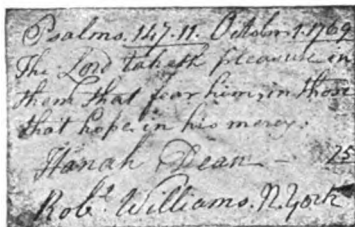 Psalms. 147.11. October. 1. 1769
The Lord taketh pleasure in
them that fear him, in those
that hope in his mercy.
Hanah Dean — 25
Robt. Williams. N. York